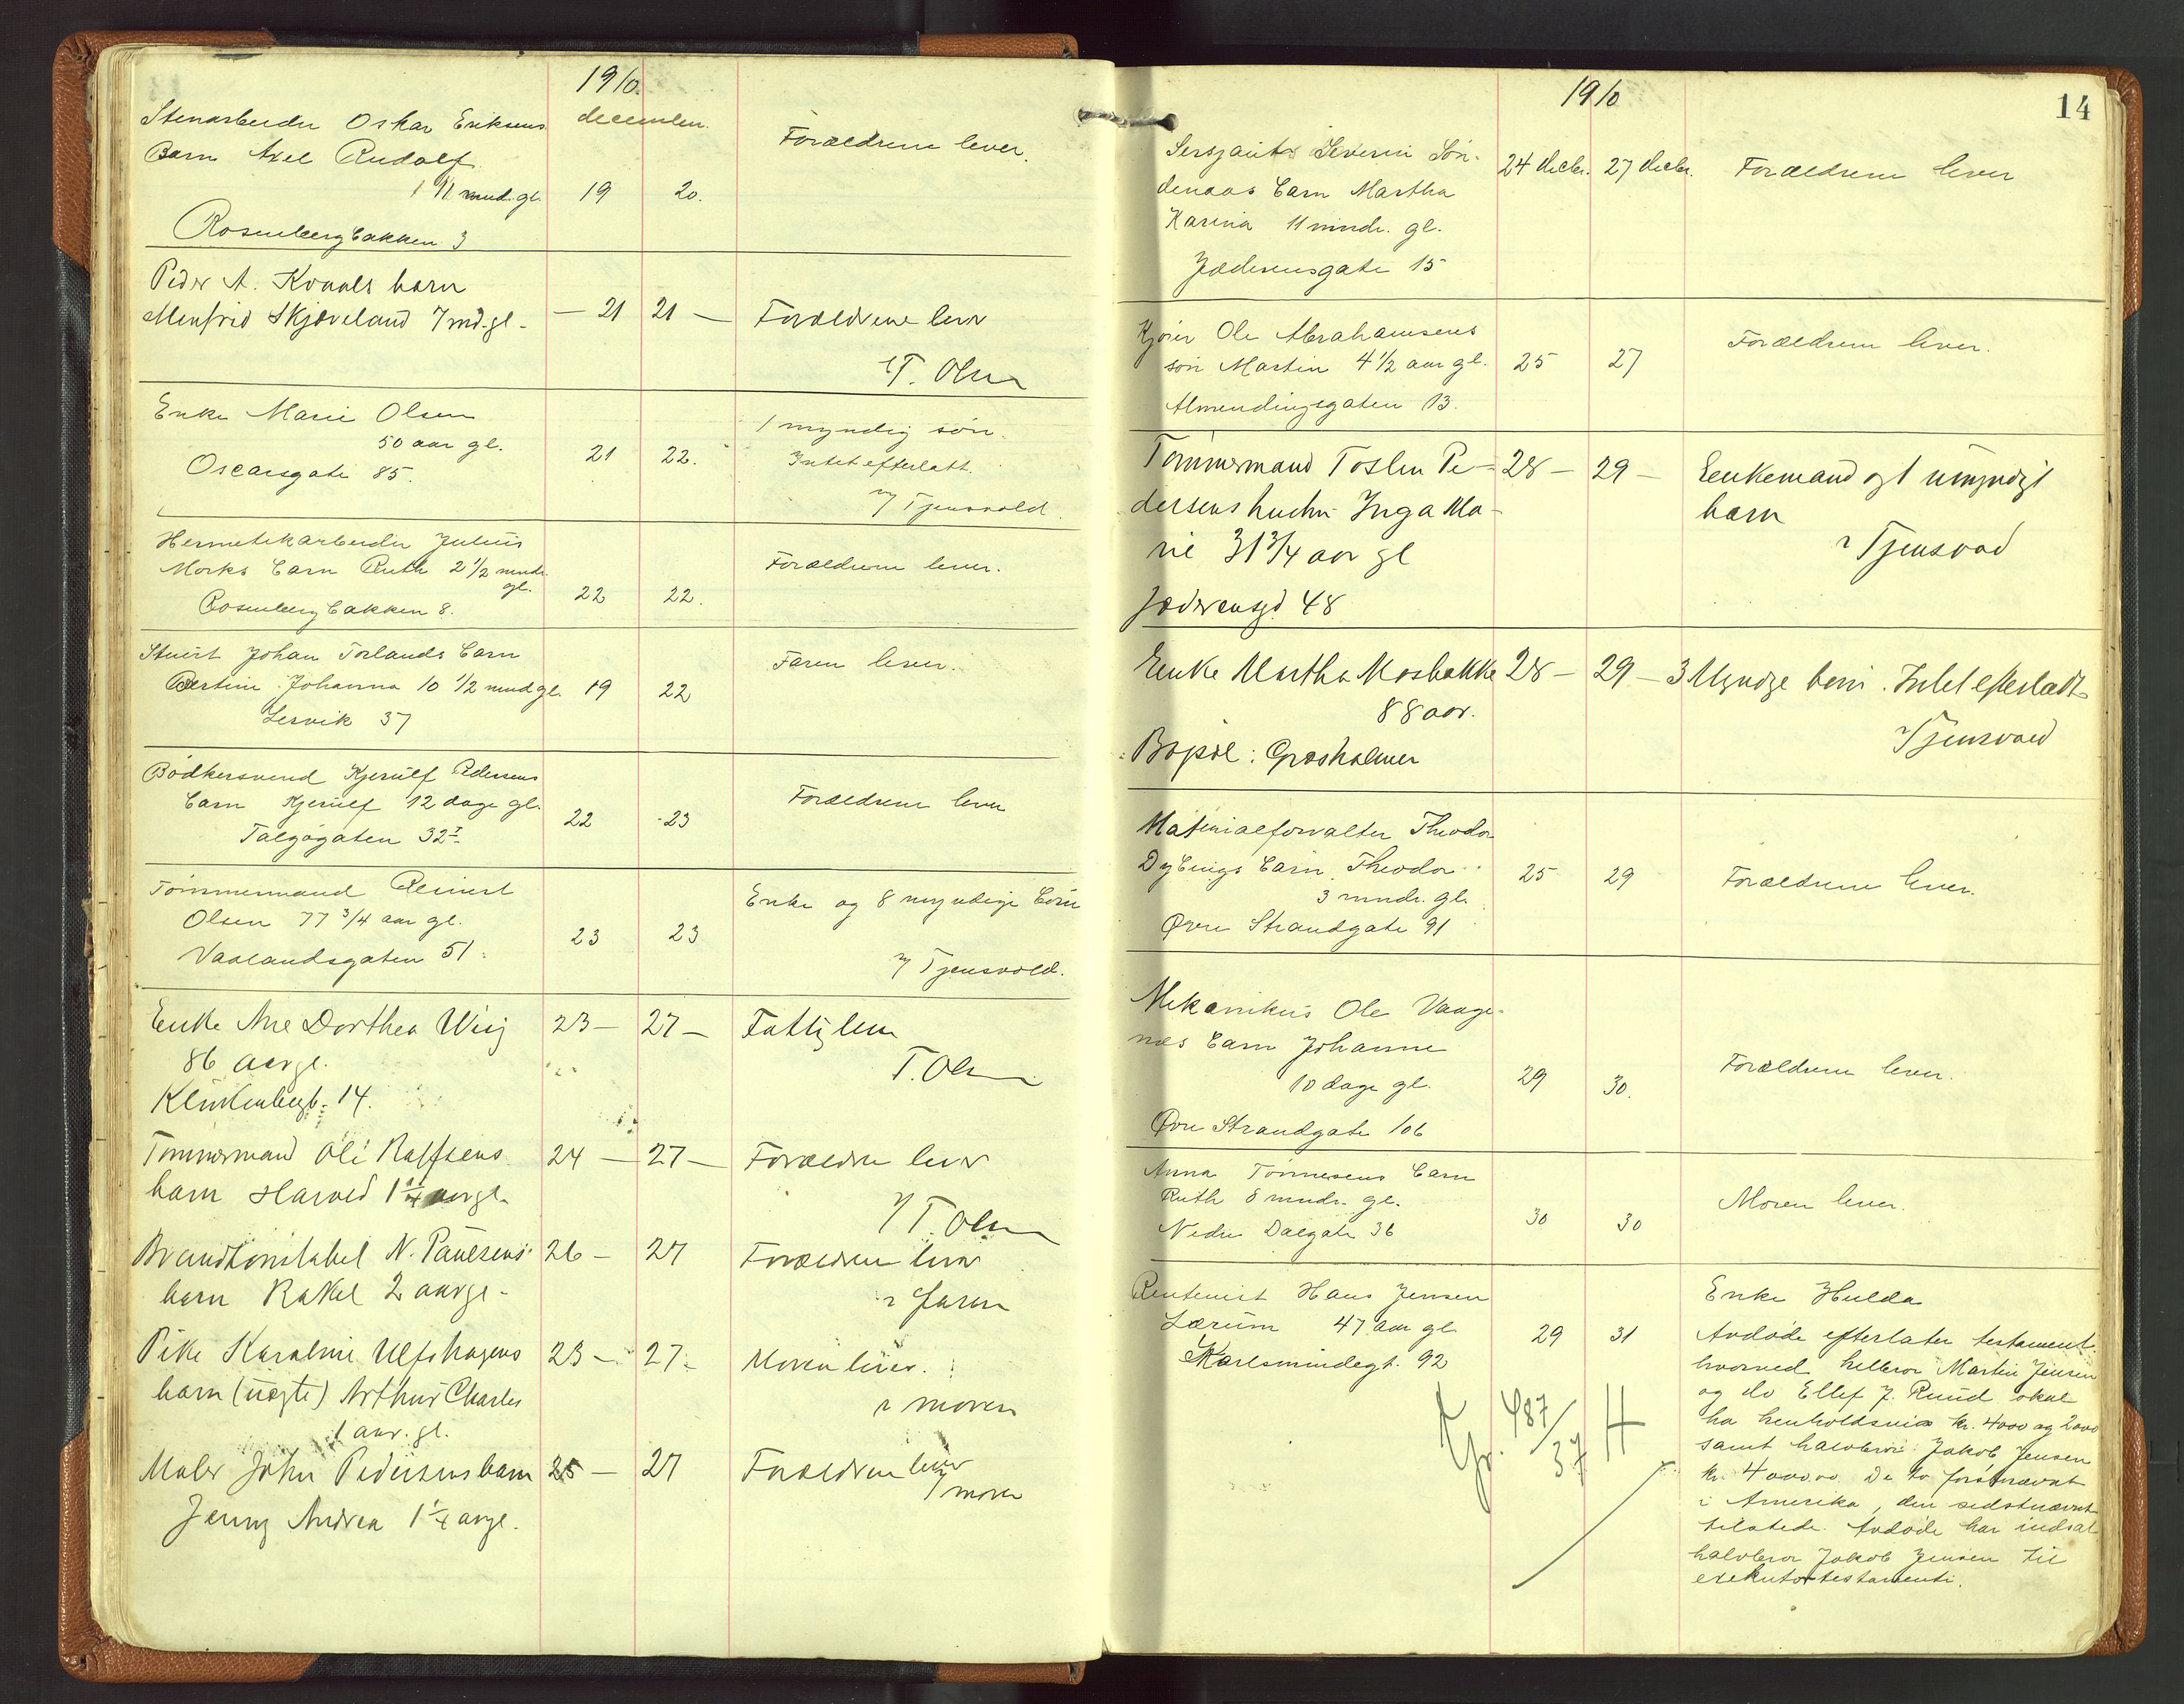 1910.
december.
Stenarbeider Oskar Eriksens
Barn Axel Rudolf
11 mnd. gl. 19 20. Forældrene lever.
Rosenbergbakken 3
Peder A. Kvaals barn
Menfrid Skjæveland 7 md. gl - — 21 21 — Forældrene lever
T. Olsen
Enke Marie Olsen
50 aar gl. 21 22. 1 myndig søn.
Oscarsgate 85. Intet efterlatt.
Tjensvold
Hermetikarbeider Julius
Morks Barn Ruth 2 1/2 mndr. Forældrene lever.
gl. 22 22.
Rosenbergbakken 8.
Stuert Johan Torlands Barn Faren lever.
Bertine Johanna 10 1/2 mnd gl. 19 22
Lervik 37
Bødkersvend Kjerulf Pedersens
Barn Kjerulf 12 dage gl. 22 23 Forældrene lever
Talgøgaten 32 I
Tømmermand Reinert
Olsen 77 3/4 aar gl. 23 23 Enke og 8 myndige Børn
Vaalandsgaten 51.
Tjensvold.
Enke Ane Dorthea Wiig 23 — 27 — Fattiglem
86 aar gl. T. Olsen
Klinkenbergt. 14.
Tømmermand Ole Rolfsens 24 — 27 — Forældre lever
barn Harald 1 1/4 aar gl.
T. Olsen
Brandkonstabel N. Paulsens 26 — 27 Forældrene lever
barn Rakel 2 aar gl - faren
Pike Karoline Ulfshagens 23 — 27 - Moren lever.
barn (uægte) Arthur Charles moren
1 aar. gl.
Maler John Pedersens barn 25 — 27 Forældrene lever
Jenny Andrea 1 1/4 aar gl. moren
1910
14
Sersjant Severin Søn-
denaas Barn Martha 24 decbr. 27 decbr. Forældrene lever
Karina 11 mndr. gl.
Jæderensgate 15
Kjører Ole Abrahamsens
søn Martin 4 1/2 aar gl. 25 27 Forældrene lever.
Almendingsgaten 13.
Tømmermand Toslen Pe- 28 — 29 — Enkemand og 1 umyndigt
dersens hustru Inga Ma- barn
rie 31 3/4 aar gl Tjensvold
Jæderensgt 48
Enke Martha Mosbakke 28 — 29 — 3 Myndge børn. Intet efterladt
88 aar. Tjensvold
Bopæl: Græsholmen
Materialforvalter Theodor
Dybings Barn Theodor 25 29 Forældrene lever.
3 mndr. gl.
Øvre Strandgate 91
Mekanikus Ole Vaage-
næs Barn Johanne
10 dage gl. 29 30. Forældrene lever.
Øvre Strandgate 106
Anna Tønnesens Barn
Ruth 8 mndr. gl. 30 30 Moren lever.
Nedre Dalgate 36
Rentenist Hans Jensen Enke Hulda
Lærum 47 aar gl 29 31 Avdøde efterlater testament.
Karlsmindegt. 92 hvorved helbror Martin Jensen
og do Ellef J. Ruud skal
ha henholdsvis kr. 4000 og 2000
samt halvbror Jakob Jensen
kr. 4000.00 De to førstnævnt
i Amerika, den sidstnævnt
tilstede. Avdøde har indsat
halvbror Jakob Jensen til
executor testamenti.
487/37 H